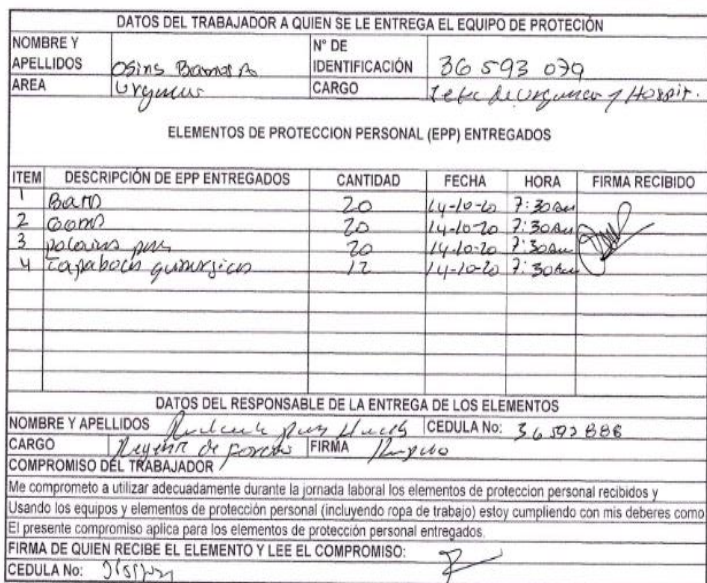 DATOS DEL TRABAJADOR A QUIEN SE LE ENTREGA EL EQUIPO DE PROTECIÓN
NOMBRE Y APELLIDOS Osiris N° DE IDENTIFICACIÓN 36 593 079
AREA CARGO Jefe de Urgencias y Hospit.
ELEMENTOS DE PROTECCION PERSONAL (EPP) ENTREGADOS
ITEM DESCRIPCIÓN DE EPP ENTREGADOS CANTIDAD FECHA HORA FIRMA RECIBIDO
1 Batas 20 14-10-20 7:30am
2 Gorros 20 14-10-20 7:30am
3 polainas 20 14-10-20 7:30am
4 Tapabocas quirurgicos 12 14-10-20 7:30am
DATOS DEL RESPONSABLE DE LA ENTREGA DE LOS ELEMENTOS
NOMBRE Y APELLIDOS CEDULA No: 36 592 888
CARGO FIRMA
COMPROMISO DEL TRABAJADOR
Me comprometo a utilizar adecuadamente durante la jornada laboral los elementos de proteccion personal recibidos y
Usando los equipos y elementos de protección personal (incluyendo ropa de trabajo) estoy cumpliendo con mis deberes como
El presente compromiso aplica para los elementos de protección personal entregados.
FIRMA DE QUIEN RECIBE EL ELEMENTO Y LEE EL COMPROMISO:
CEDULA No: